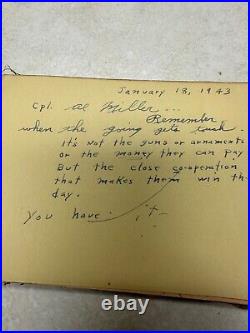 January 18, 1943
Cpl. Al Miller...
Remember
when the going gets tush
it's not the guns or ornaments
or the money they can pay
But the close co-operation
that makes them win the
day.
You have it